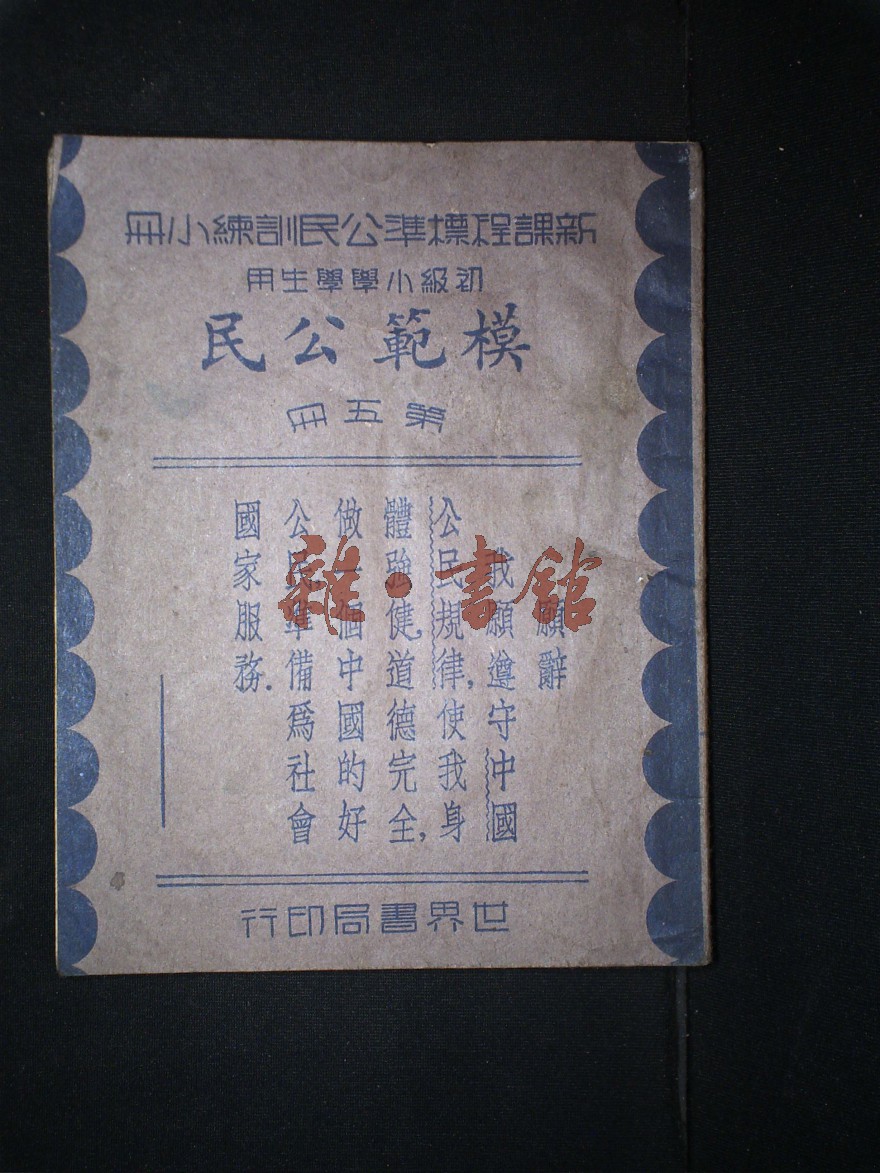 新課程標準公民訓練小冊
初級小學學生用
模範公民
第五冊
願辭
我願遵守中國
公民規律，使我身
體強健，道德完全，
做一個中國的好
公民，準備為社會
國家服務．
世界書局印行
雜·書館